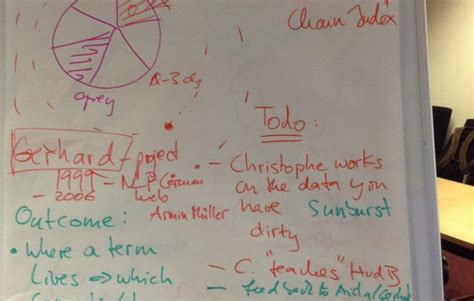 Chain Index
Q-3 dg
grey
Gerhard-project
1999 - NLP German
- 2006 web
Armin Müller
Outcome:
• Where a term
Lives => which
Todo:
- Christophe works
on the data you
have Sunburst
dirty
- C. "teaches" HudB
- feedback to